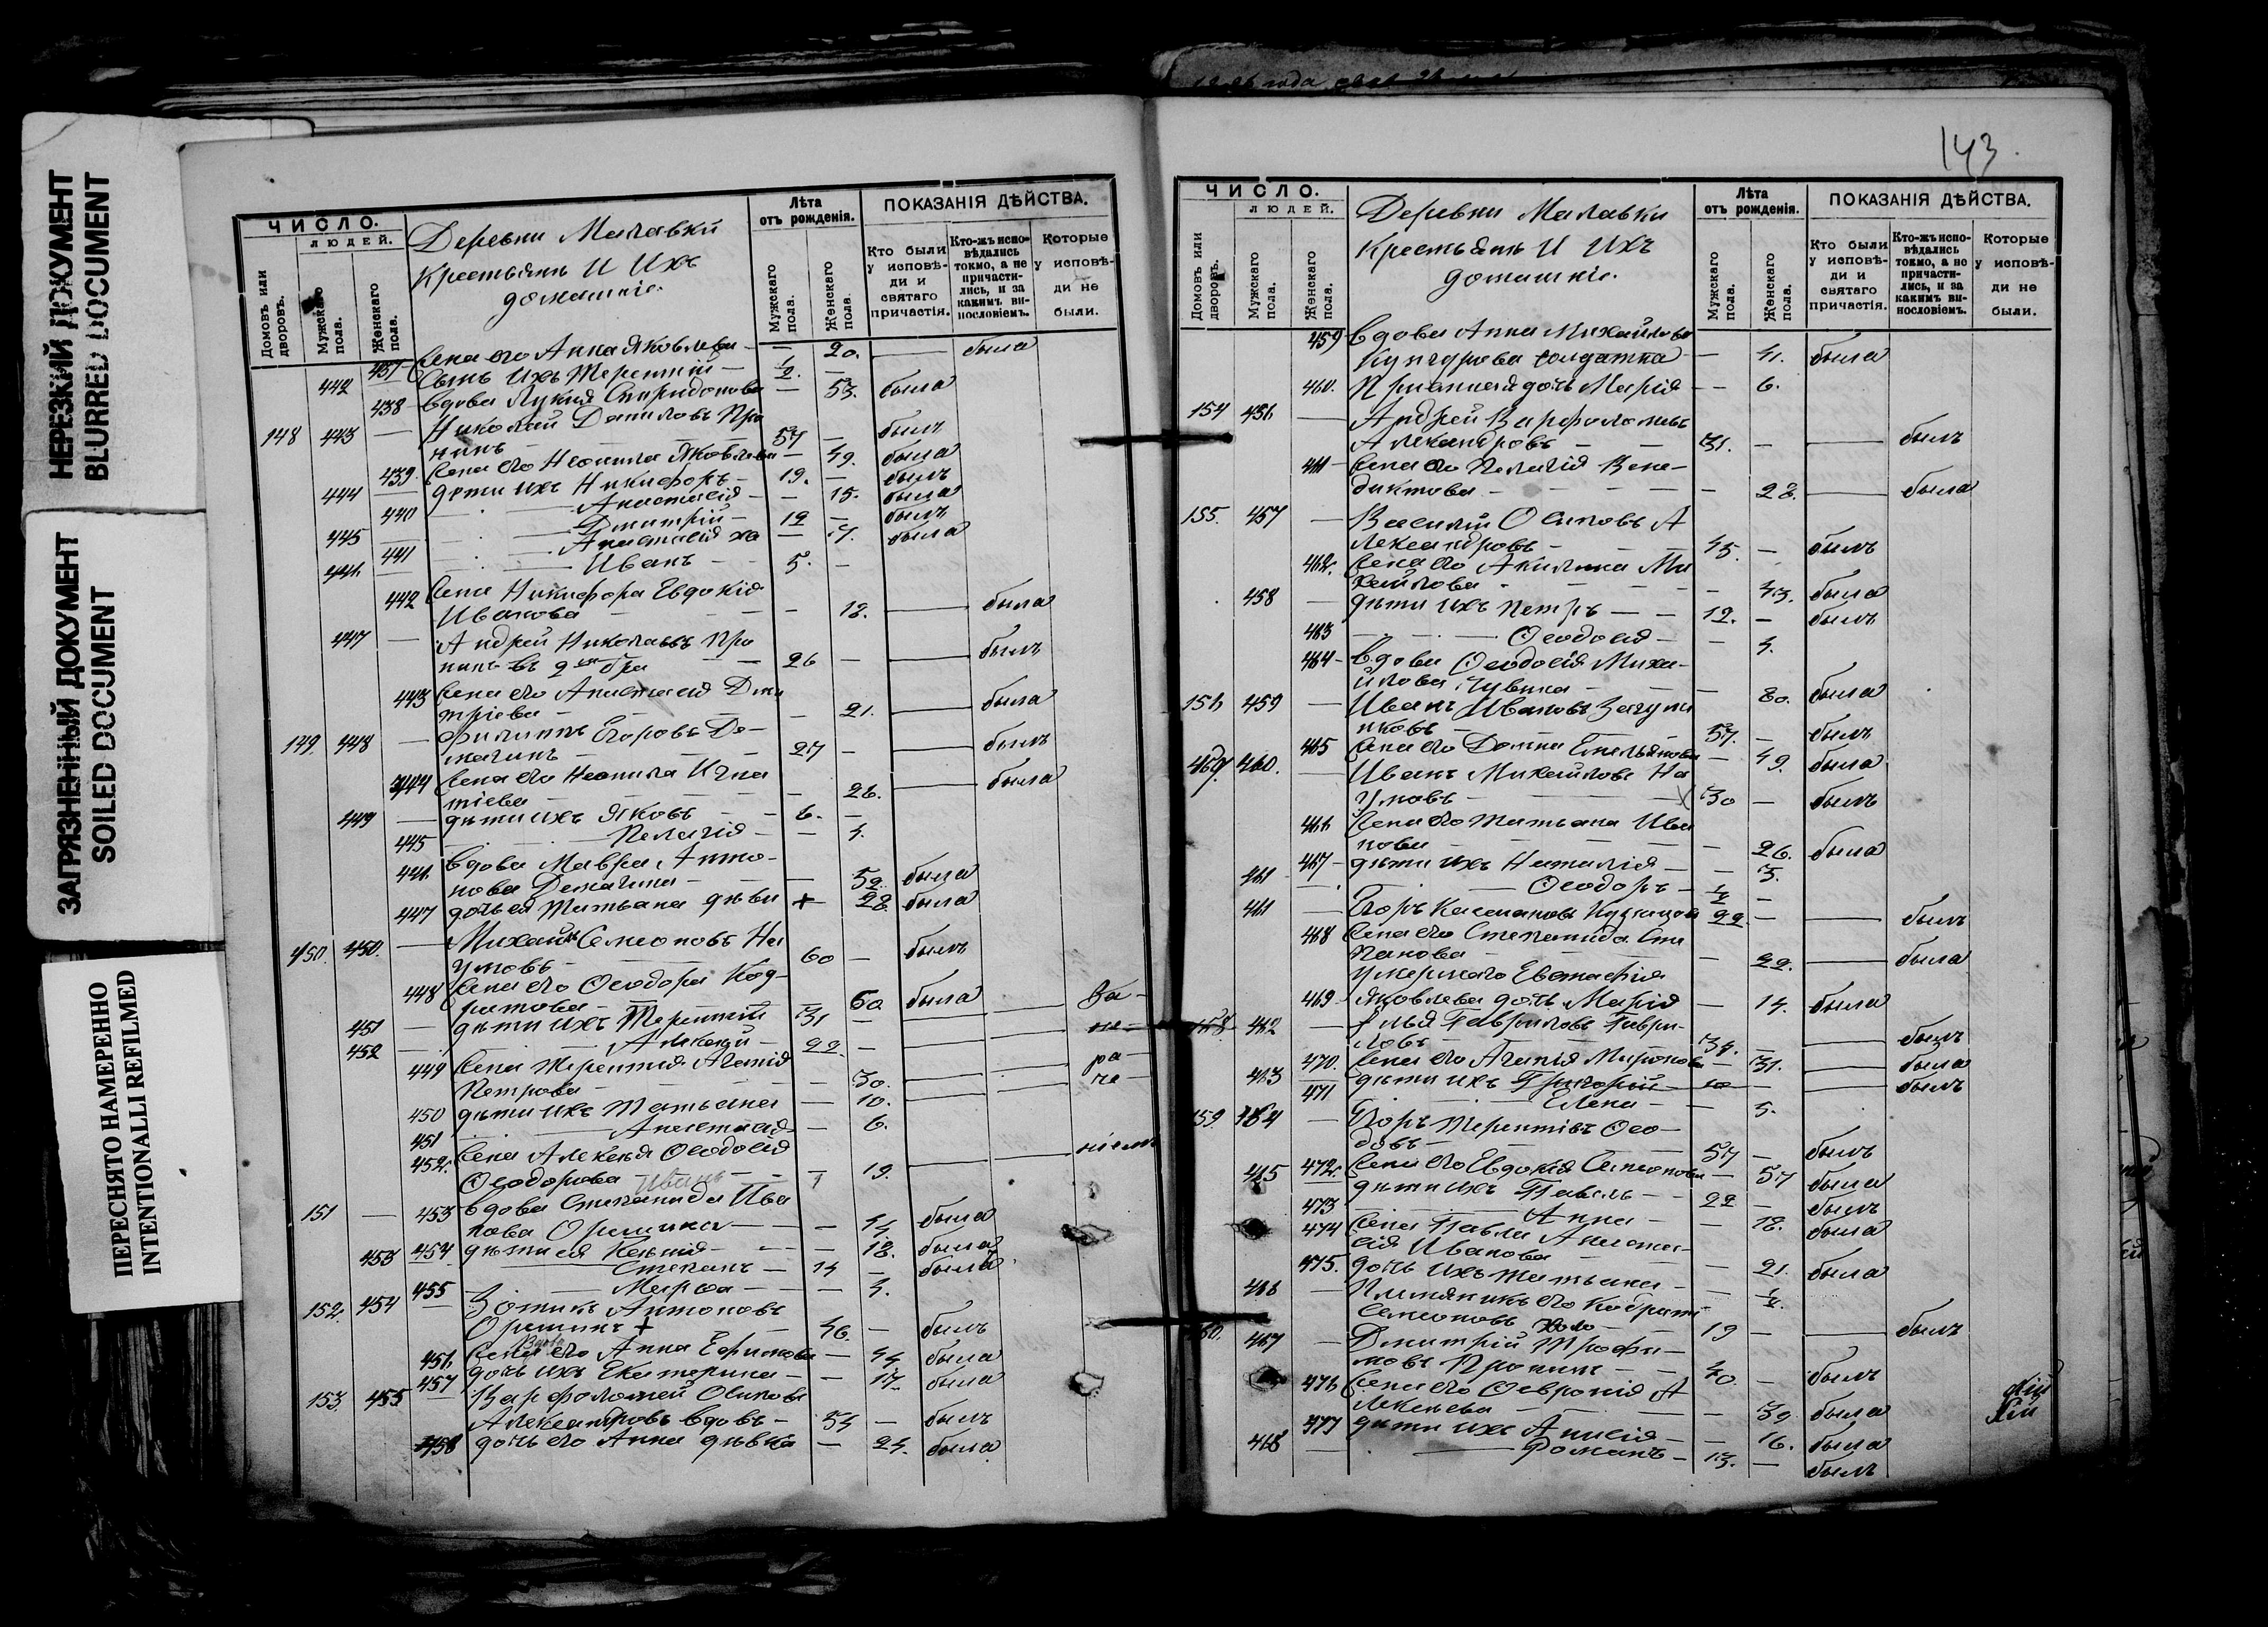 НЕРЕЗКИЙ ДОКУМЕНТ
BLURRED DOCUMENT
ЗАГРЯЗНЕННЫЙ ДОКУМЕНТ
SOILED DOCUMENT
ПЕРЕСНЯТО НАМЕРЕННО
INTENTIONALLI REFILMED
ЧИСЛО.
ЛЮДЕЙ.
Домовъ или дворовъ.
Мужскаго пола.
Женскаго пола.
Деревни Милавки
Крестьянъ И Ихъ
домашніе.
Лѣта
отъ рожденія.
Мужскаго пола.
Женскаго пола.
ПОКАЗАНІЯ ДѢЙСТВА.
Кто были у исповѣ-ди и святаго причастія.
Кто-жъ испо-вѣдались токмо, а не причасти-лись, и за какимъ ви-нословіемъ.
Которые у исповѣ-ди не были.
437 Жена его Анна Яковлева — 20. — была
442 — Сынъ ихъ Терентій — 1/2. —
438 вдова Лукія Спиридонова — 53. была
148 443 — Николай Даниловъ Про
нинъ — 57 — былъ
439 Жена его Неонила Яковлева — 49. была
444 — дѣти ихъ Никифоръ — 19. — былъ
440 — Анастасія — — 15. была
445 — Дмитрій — 12 — былъ
441 — Анастасія — 7. была
446 — Иванъ — 5. —
442 Жена Никифора Евдокія
Иванова — — 18. — была
447 — Андрей Николаевъ Про
нинъ — 26 — — былъ
443 Жена его Анастасія Дми
тріева — — 21. — была
149. 448 — Филиппъ Егоровъ Де-
— 27 — — былъ
444 Жена его Неонила Игна
тіева — — 26. — была
449 — дѣти ихъ Яковъ — 6. —
445 — Пелагія — — 4.
446 вдова Мавра Анто-
нова — — 52. была
447 дочь ея Татьяна дѣви + 28. была
150. 450. — Михаилъ Семеоновъ На
умовъ — 60 — былъ
448 Жена его Ѳеодора Код-
ратова — 60 была
451 — дѣти ихъ Терентій 31 — За-
452 — Алексѣй — 22. — не-
449 Жена Терентія Агафія
Петрова — — 30. — ра-
450 дѣти ихъ Татьяна — 10. — че-
451 — Анастасія — 6.
452. Жена Алексѣя Ѳеодосія
Ѳеодорова Иванъ — 19. — ніемъ
151 — 453 вдова Степанида Ива
нова — — 44 была
454 дѣти ея Ксенія — — 18. была
453 — Степанъ — 14 — былъ
455 — Марѳа — — 4.
152. 454 — Зотикъ Антоновъ
+ — 46. — былъ
456 Жена его Анна Ефимова — 44 была
457 дочь ихъ Екатерина — — 17. была
153. 455 — Варфоломей Осиповъ
Александровъ вдовъ — 54 — былъ
458 дочь его Анна дѣвка — 24. была
143.
ЧИСЛО.
ЛЮДЕЙ.
Домовъ или дворовъ.
Мужскаго пола.
Женскаго пола.
Деревни Милавки
Крестьянъ И Ихъ
домашніе.
Лѣта
отъ рожденія.
Мужскаго пола.
Женскаго пола.
ПОКАЗАНІЯ ДѢЙСТВА.
Кто были у исповѣ-ди и святаго причастія.
Кто-жъ испо-вѣдались токмо, а не причасти-лись, и за какимъ ви-нословіемъ.
Которые у исповѣ-ди не были.
459 вдова Анна Михайлова
солдатка — — 41. была
460. дочь Марія — — 6.
154 456 — Андрей Варфоломеевъ
Александровъ — 31. — — былъ
461 — Жена его Пелагія Вене-
диктова — — 28. — была
155. 457 — Василій Осиповъ А
лександровъ — 45. — былъ
462. Жена его Акилина Ми
хайлова — — 43. была
458 — дѣти ихъ Петръ — — 12. — былъ
463 — Ѳеодосія — 4.
464 — вдова Ѳеодосія Миха-
йлова — — 80. была
156 459 — Иванъ Ивановъ
— 57. — былъ
465 Жена его Домна Емельянова — 49. была
460. — Иванъ Михайловъ На
умовъ — 30 — былъ
466 Жена его Татьяна Ива
нова — — 26. была
467 — дѣти ихъ Наталія — — 3.
461 — Ѳеодоръ — —
461 — Егоръ 22. — — былъ
468 Жена его Степанида Сте
панова — — 22. — была
умершаго Евстафія
469 — Яковлева дочь Марія — 14. была
158. 462 — Илья Гавриловъ Гаври-
ловъ — 34. — — былъ
470. Жена его Агафія Миронова — 31. — была
463 — дѣти ихъ Григорій — 10 — — былъ
471 — Елена — — 5.
159. 464 — Егоръ Терентіевъ
— 57 — былъ
472. Жена его Евдокія Семеонова — 57 была
465 — дѣти ихъ Павелъ — — 22 — былъ
473 — Анна — — 18. была
474 Жена Павла Анаста-
сія Иванова — — 21. была
475. дочь ихъ Татьяна —
466 — Племянникъ его Кодратъ
Семеоновъ — 19 — — былъ
160. 467 — Дмитрій Трофи-
мовъ Пронинъ — 40 — былъ
476 Жена его Февронія А
лексѣева — — 39. была
477 дѣти ихъ Анисія — — 16. была
468 — Романъ — 13. — былъ